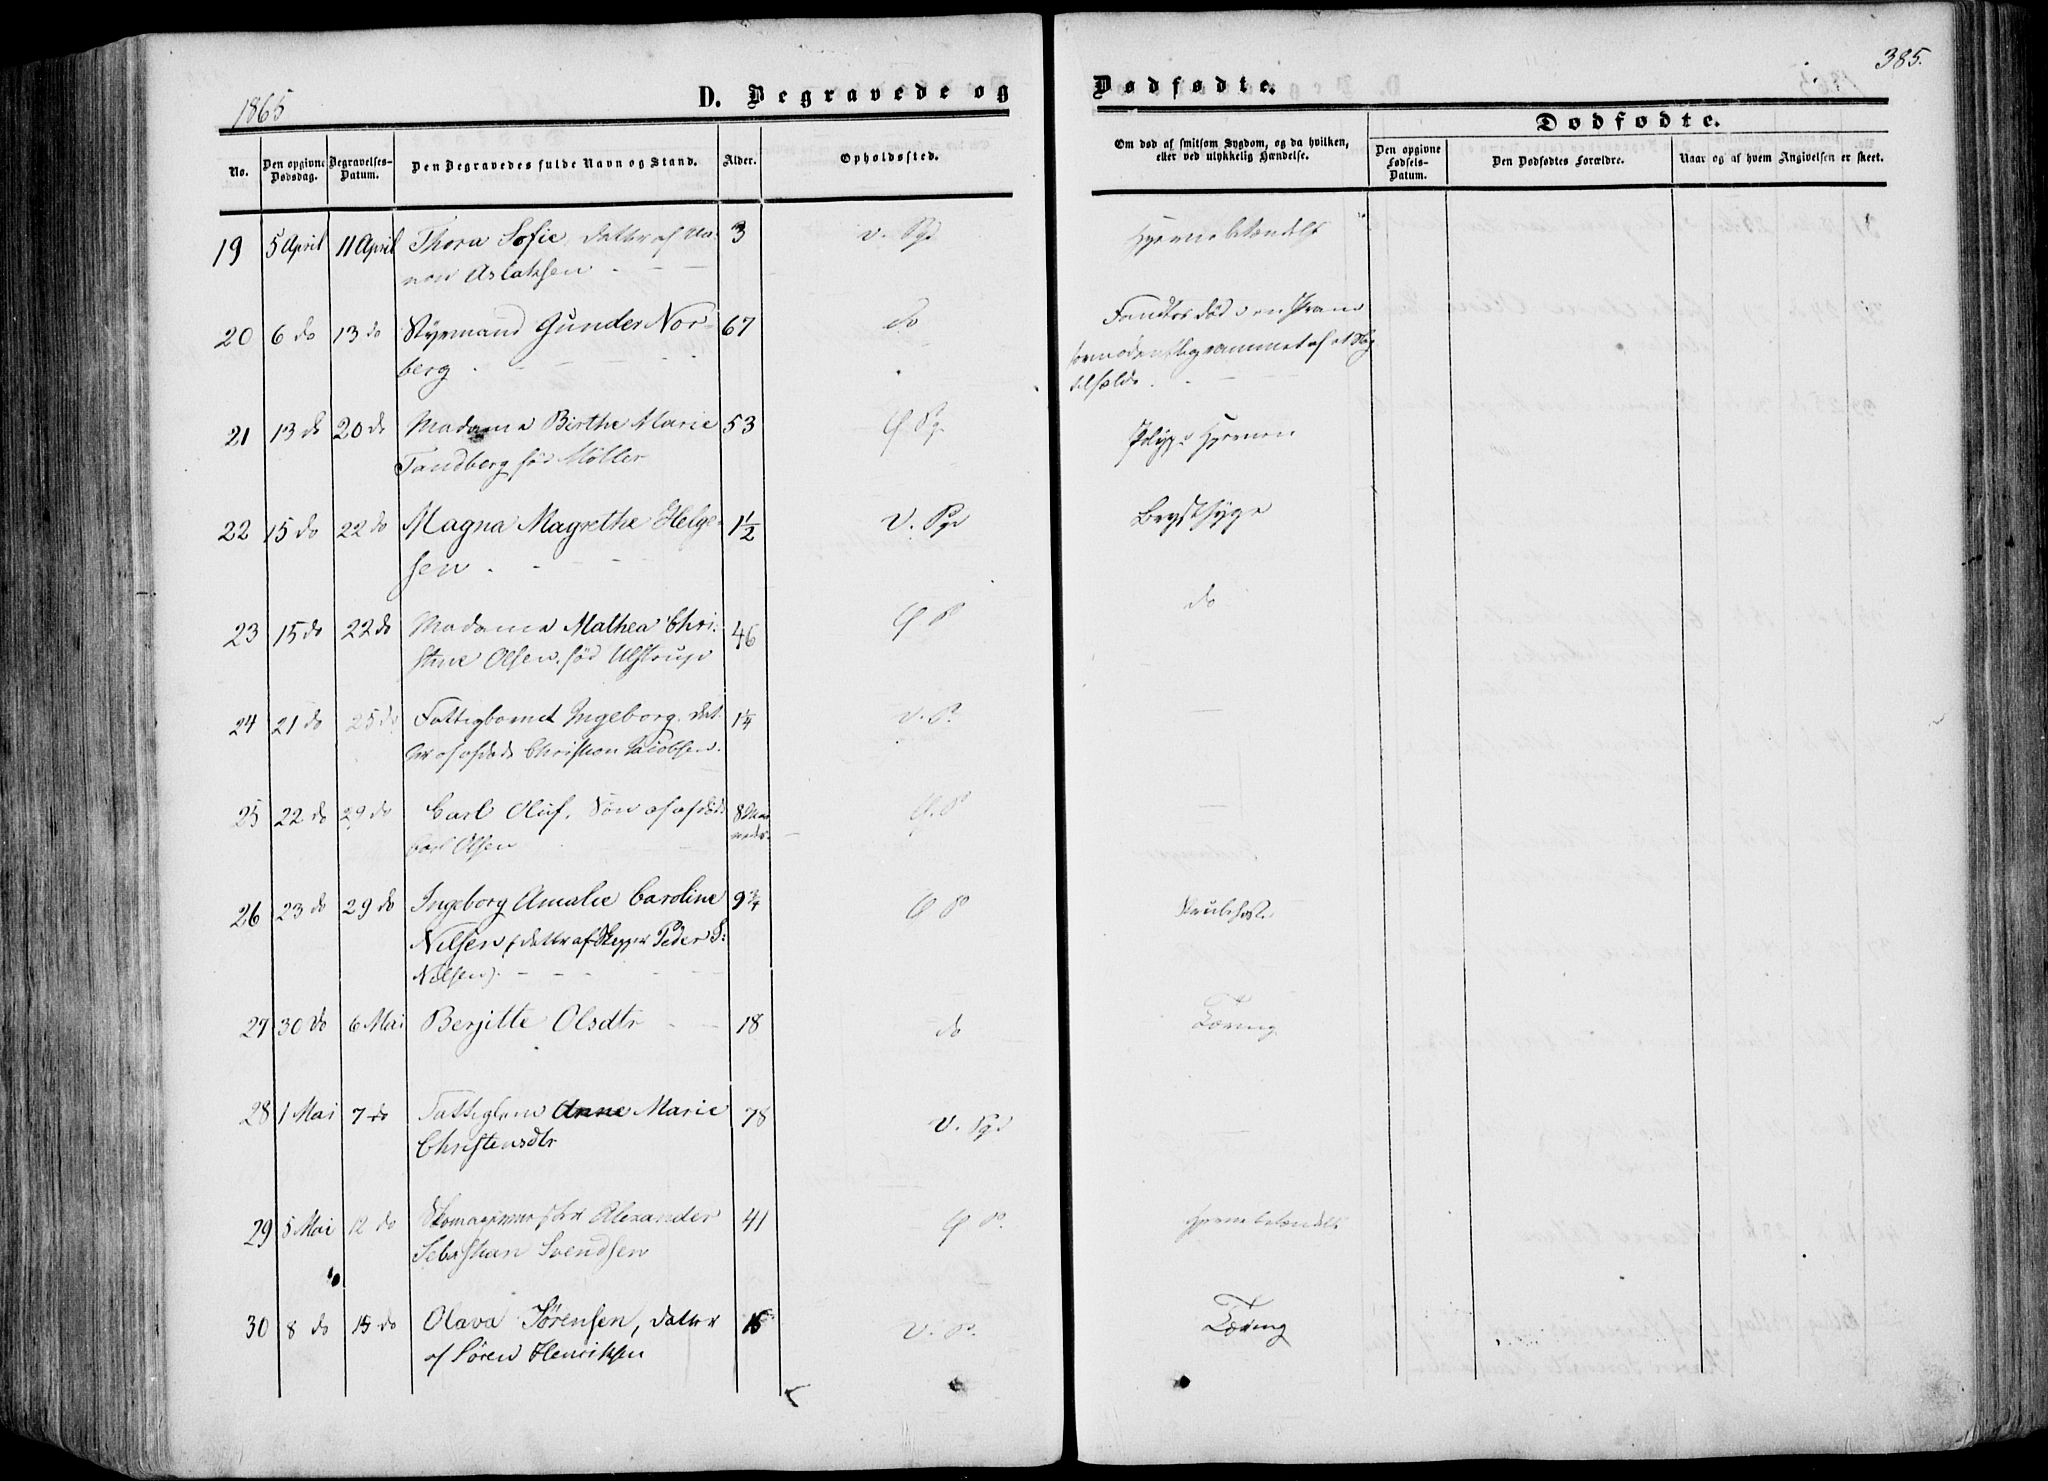 1865
D. Begravede og
Dødfødte.
385.
No.
Den opgivne Dødsdag.
Begravelses-Datum.
Den Begravedes fulde Navn og Stand.
Alder.
Opholdssted.
Om død af smitsom Sygdom, og da hvilken, eller ved ulykkelig Hændelse.
Dødfødte.
Den opgivne Fødsels-Datum.
Den Dødfødtes Forældre.
Naar og af hvem Angivelsen er skeet.
19 5 April 11 April Thora Sofie, Datter af 3 V. Pgd Hjernebetændelse
Aslaksen
20 6 do 13 do Styrmand Gunder Nor- 67 do Fandtes død i en Pram
berg
21 13 do 20 do Madame Birthe Marie 53 Ø Pg. Hjernen
Tandberg, fød Møller
22 15 do 22 do Magna Magrethe Helge- 1½ V. Pgd Brystsyge
sen
23 15 do 22 do Madame Mathea Chri- 46 Ø P do
stine Olsen, fød Ulstrup
24 21 do 25 do Fattigbarnet Ingeborg, Dat- 1¼ V. P.
ter af afdøde Christian Jacobsen.
25 22 do 29 do Carl Oluf, Søn af afdøde 8 Maa- Ø. P
Carl Olsen neder
26 23 do 29 do Ingeborg Amalie Caroline 9¾ Ø P Strubehoste
Nilsen (Datter af Skipper Peder S:
Nilsen)
27 30 do 6 Mai Berjitte Olsdtr 18 do Tæring
28 1 Mai 7 do Fattiglem Anne Marie 78 V. Pgd
Christensdtr
29 5 Mai 12 do Skomagermester Alexander 41 Ø P. Hjernebetændelse
Sebastian Svendsen
30 8 do 15 do Olava Sørensen, Datter 15 V. P. Tæring
af Søren Henriksen